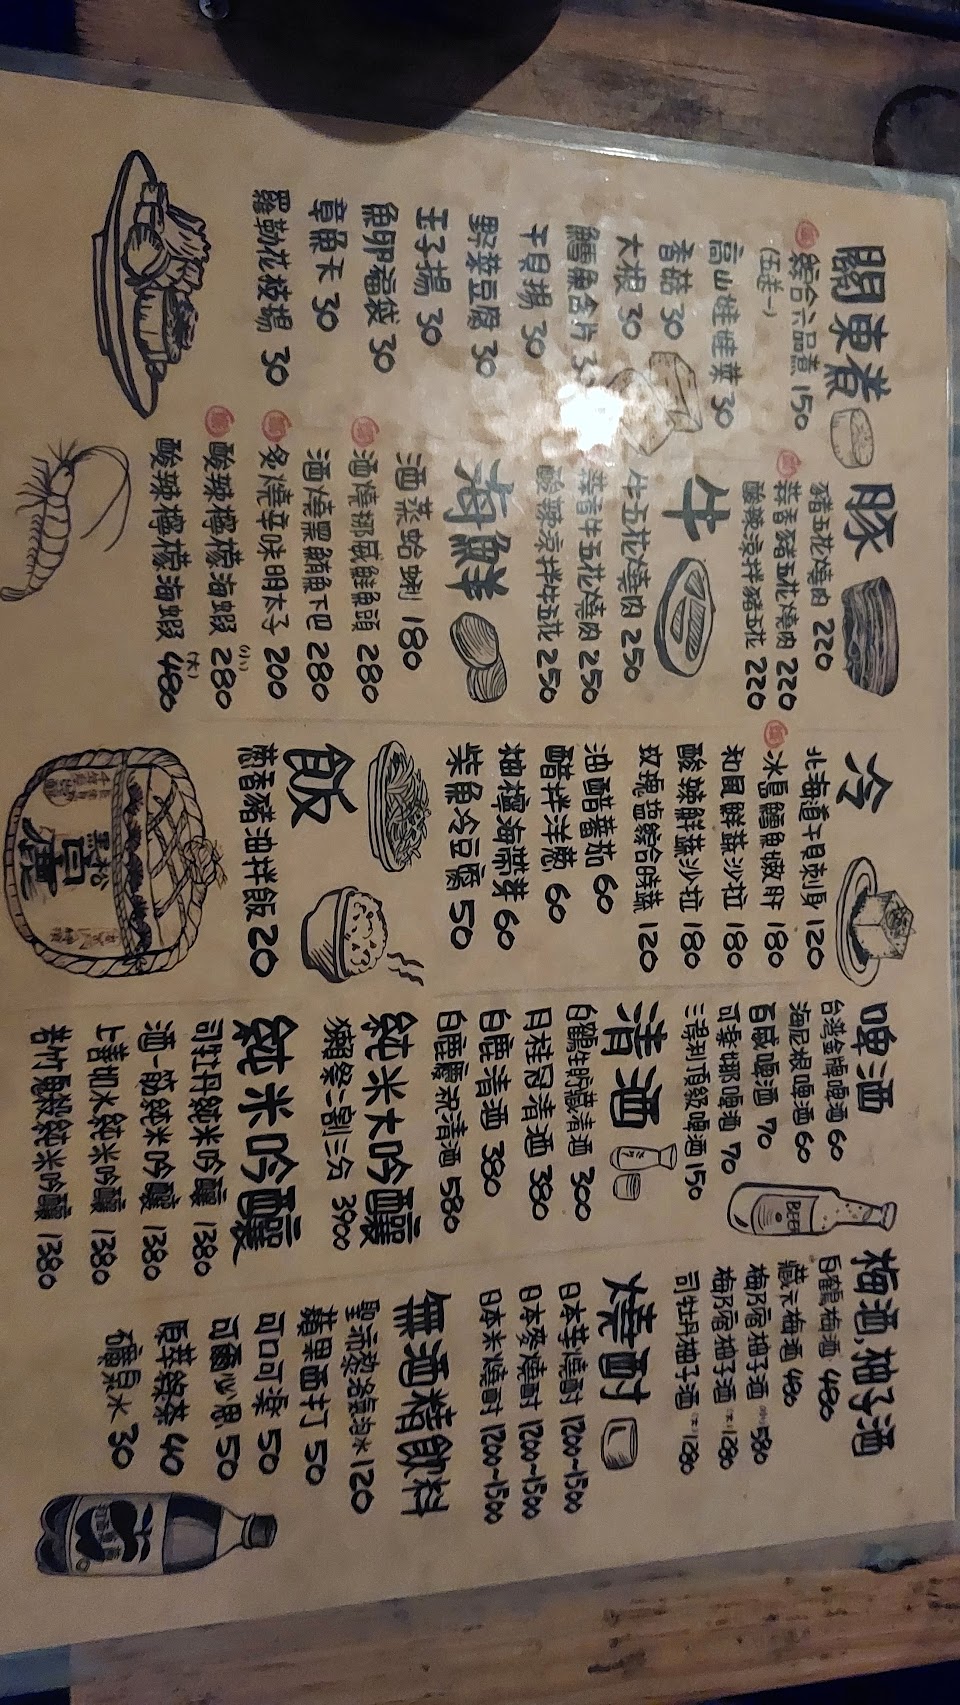 關東煮
綜合六品煮 150
(伍選一)
高山娃娃菜 30
香菇 30
大根 30
鱈魚合片 30
干貝揚 30
野菜豆腐 30
玉子揚 30
魚卵福袋 30
章魚卡 30
羅勒花枝揚 30
豚
豬五花燒肉 220
蒜香豬五花燒肉 220
酸辣涼拌豬五花 220
牛
牛五花燒肉 250
蒜香牛五花燒肉 250
酸辣涼拌牛五花 250
海鮮
酒蒸蛤蜊 180
酒燒挪威鮭魚頭 280
酒燒黑鮪魚下巴 280
炙燒辛味明太子 200
酸辣檸檬海蝦(小) 280
酸辣檸檬海蝦(大) 480
冷
北海道干貝刺身 120
冰温鱈魚嫩肝 180
和風鮮蔬沙拉 180
酸辣鮮蔬沙拉 180
玫瑰鹽綜合時蔬 120
油醋蕃茄 60
醋拌洋蔥 60
柚檸海帶芽 60
柴魚冷豆腐 50
飯
蔥香豬油拌飯 20
啤酒
台灣金牌啤酒 60
海尼根啤酒 60
百威啤酒 70
可樂娜啤酒 70
三得利頂級啤酒 150
清酒
白鶴生貯藏清酒 300
月桂冠清酒 380
白鹿清酒 380
白鹿慶祝清酒 580
純米大吟釀
獺祭二割三分 3900
純米吟釀
司牡丹純米吟釀 1380
酒一筋純米吟釀 1380
上善如水純米吟釀 1380
若竹鬼殺純米吟釀 1380
梅酒,柚子酒
白鶴梅酒 480
藏元梅酒 480
梅乃宿柚子酒(小) 580
梅乃宿柚子酒(大) 1280
司牡丹柚子酒(大) 1280
燒酎
日本芋燒酎 1200~1500
日本麥燒酎 1200~1500
日本米燒酎 1200~1500
無酒精飲料
聖示蔡洛氣泡水 120
蘋果西打 50
可口可樂 50
可爾必思 50
原萃綠茶 40
礦泉水 30
BEER
黑松